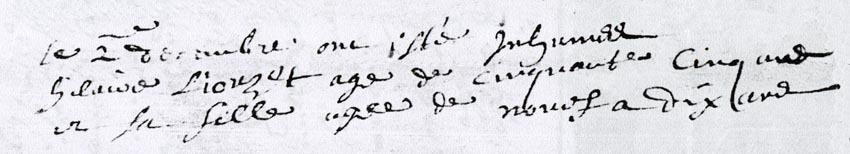 le 2me decembre ont esté Inhumee
hilaire Liorzet age de cinquante cinq ans
et sa fille agee de nouef a dix ans